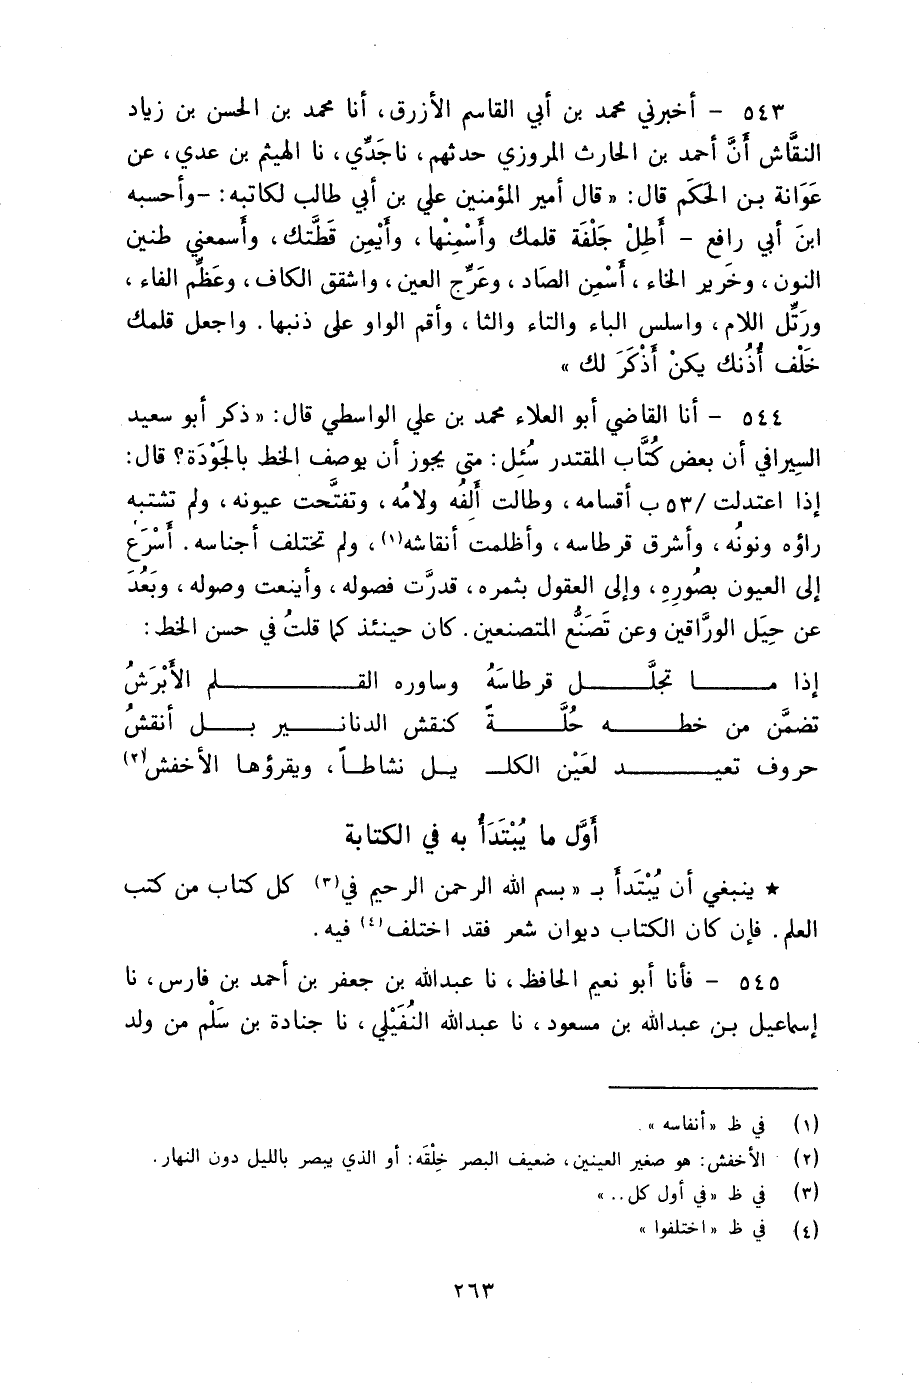 ٥٤٣ - أخبرني محمد بن أبي القاسم الأزرق، أنا محمد بن الحسن بن زياد
النقَّاش أَنَّ أحمد بن الحارث المروزي حدثهم، ناجَدِّي، نا الهيثم بن عدي، عن
عَوَانة بن الحَكَم قال: « قال أمير المؤمنين علي بن أبي طالب لكاتبه: -وأحسبه
ابنَ أبي رافع - أَطِلْ جَلْفَة قلمك وأَسْمِنْها، وأَيْمِن قَطَّتك، وأَسمعني طنين
النون، وخَرير الخاء، أَسْمِن الصَاد، وعَرِّج العين، واشقق الكاف، وعَظِّم الفاء،
ورَتِّل اللام، واسلس الباء والتاء والثا، وأقم الواو على ذنبها. واجعل قلمك
خَلْف أُذُنك يكنْ أَذْكَرَ لك »
٥٤٤ - أنا القاضي أبو العلاء محمد بن علي الواسطي قال: « ذكر أبو سعيد
السِيرافي أن بعض كُتَّاب المقتدر سُئِل: متى يجوز أن يوصف الخط بالجَوْدَة؟ قال:
إذا اعتدلت /٥٣ ب أقسامه، وطالت أَلِفُه ولامُه، وتفتَّحت عيونه، ولم تشتبه
راؤه ونونُه، وأشرق قرطاسه، وأظلمت أنقاشه(١)، ولم تختلف أجناسه. أَسْرَعَ
إلى العيون بصُورِهِ، وإلى العقول بثمره، قدرَّت فصوله، وأينعت وصوله، وبَعُدَ
عن حِيَل الورَّاقين وعن تَصَنُّع المتصنعين. كان حينئذ كما قلتُ في حسن الخط:
إذا مـــا تجلَّــل قرطاسَهُ وساوره القـــلم الأَبْرَشُ
تضمَّن من خطــه حُلَّــةً كنقش الدنانــير بــل أنقشُ
حروف تعيــد لعَيْن الكلـ يل نشاطاً، ويقرؤها الأخفش(٢)
أَوَّل ما يُبْتَدَأُ به في الكتابة
★ ينبغي أن يُبْتَدأَ بـ « بسم الله الرحمن الرحيم في(٣) كل كتاب من كتب
العلم. فإن كان الكتاب ديوان شعر فقد اختلف(٤) فيه.
٥٤٥ - فأنا أبو نعيم الحافظ، نا عبدالله بن جعفر بن أحمد بن فارس، نا
إسماعيل بن عبدالله بن مسعود، نا عبدالله النُفَيْلي، نا جنادة بن سَلْم من ولد
(١) في ظ « أنفاسه ».
(٢) الأخفش: هو صغير العينين، ضعيف البصر خِلْقَه: أو الذي يبصر بالليل دون النهار.
(٣) في ظ « في أول كل.. »
(٤) في ظ « اختلفوا »
٢٦٣